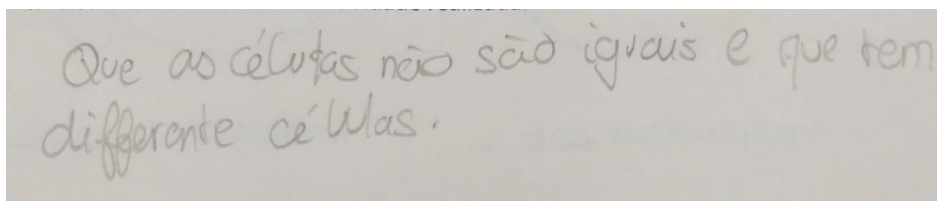 Que as célutas não são iguais e que tem
differente células.